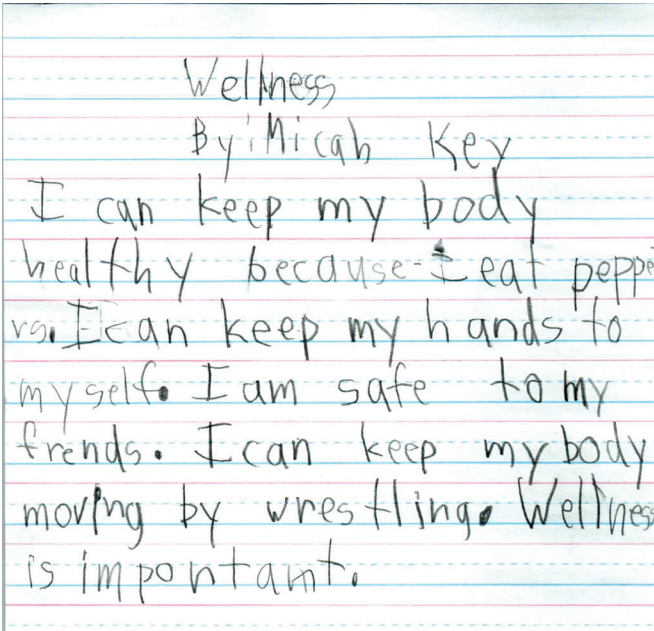 Wellness
By: Micah Key
I can keep my body
healthy because I eat peppe
rs. I can keep my hands to
myself. I am safe to my
frends. I can keep my body
moving by wrestling. Wellness
is important.